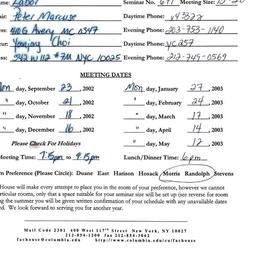 me: Labor Seminar No. 671 Meeting Size: 15-20
air: Peter Marcuse Daytime Phone: y43322
ess: 410G Avery MC 0347 Evening Phone: 203-753-1140
eur: Yongjing Choi Daytime Phone: yc257
ess: 542 W 112 #7M NYC 10025 Evening Phone: 212-749-0569
MEETING DATES
on day, September 23, 2002 Mon, day, January 27, 2003
" day, October 21, 2002 " day, February 24, 2003
" day, November 18, 2002 " day, March 17, 2003
" day, December 16, 2002 " day, April 14, 2003
Please Check For Holidays " day, May 12, 2003
Meeting Time: 7:15pm to 9:15pm Lunch/Dinner Time: 6pm
n Preference (Please Circle): Duane East Harison Hosack Morris Randolph Stevens
House will make every attempt to place you in the room of your preference, however we cannot
articular rooms, only that a space suitable for your seminar size will be set up (so reverse for room
ng the summer you will be given written confirmation of your schedule with any unavailable dates
ed. We look forward to serving you for another year.
Mail Code 2301 400 West 117th Street New York, NY 10027
212-854-1200 fax 212-854-2042
fachouse@columbia.edu http://www.columbia.edu/cu/fachouse